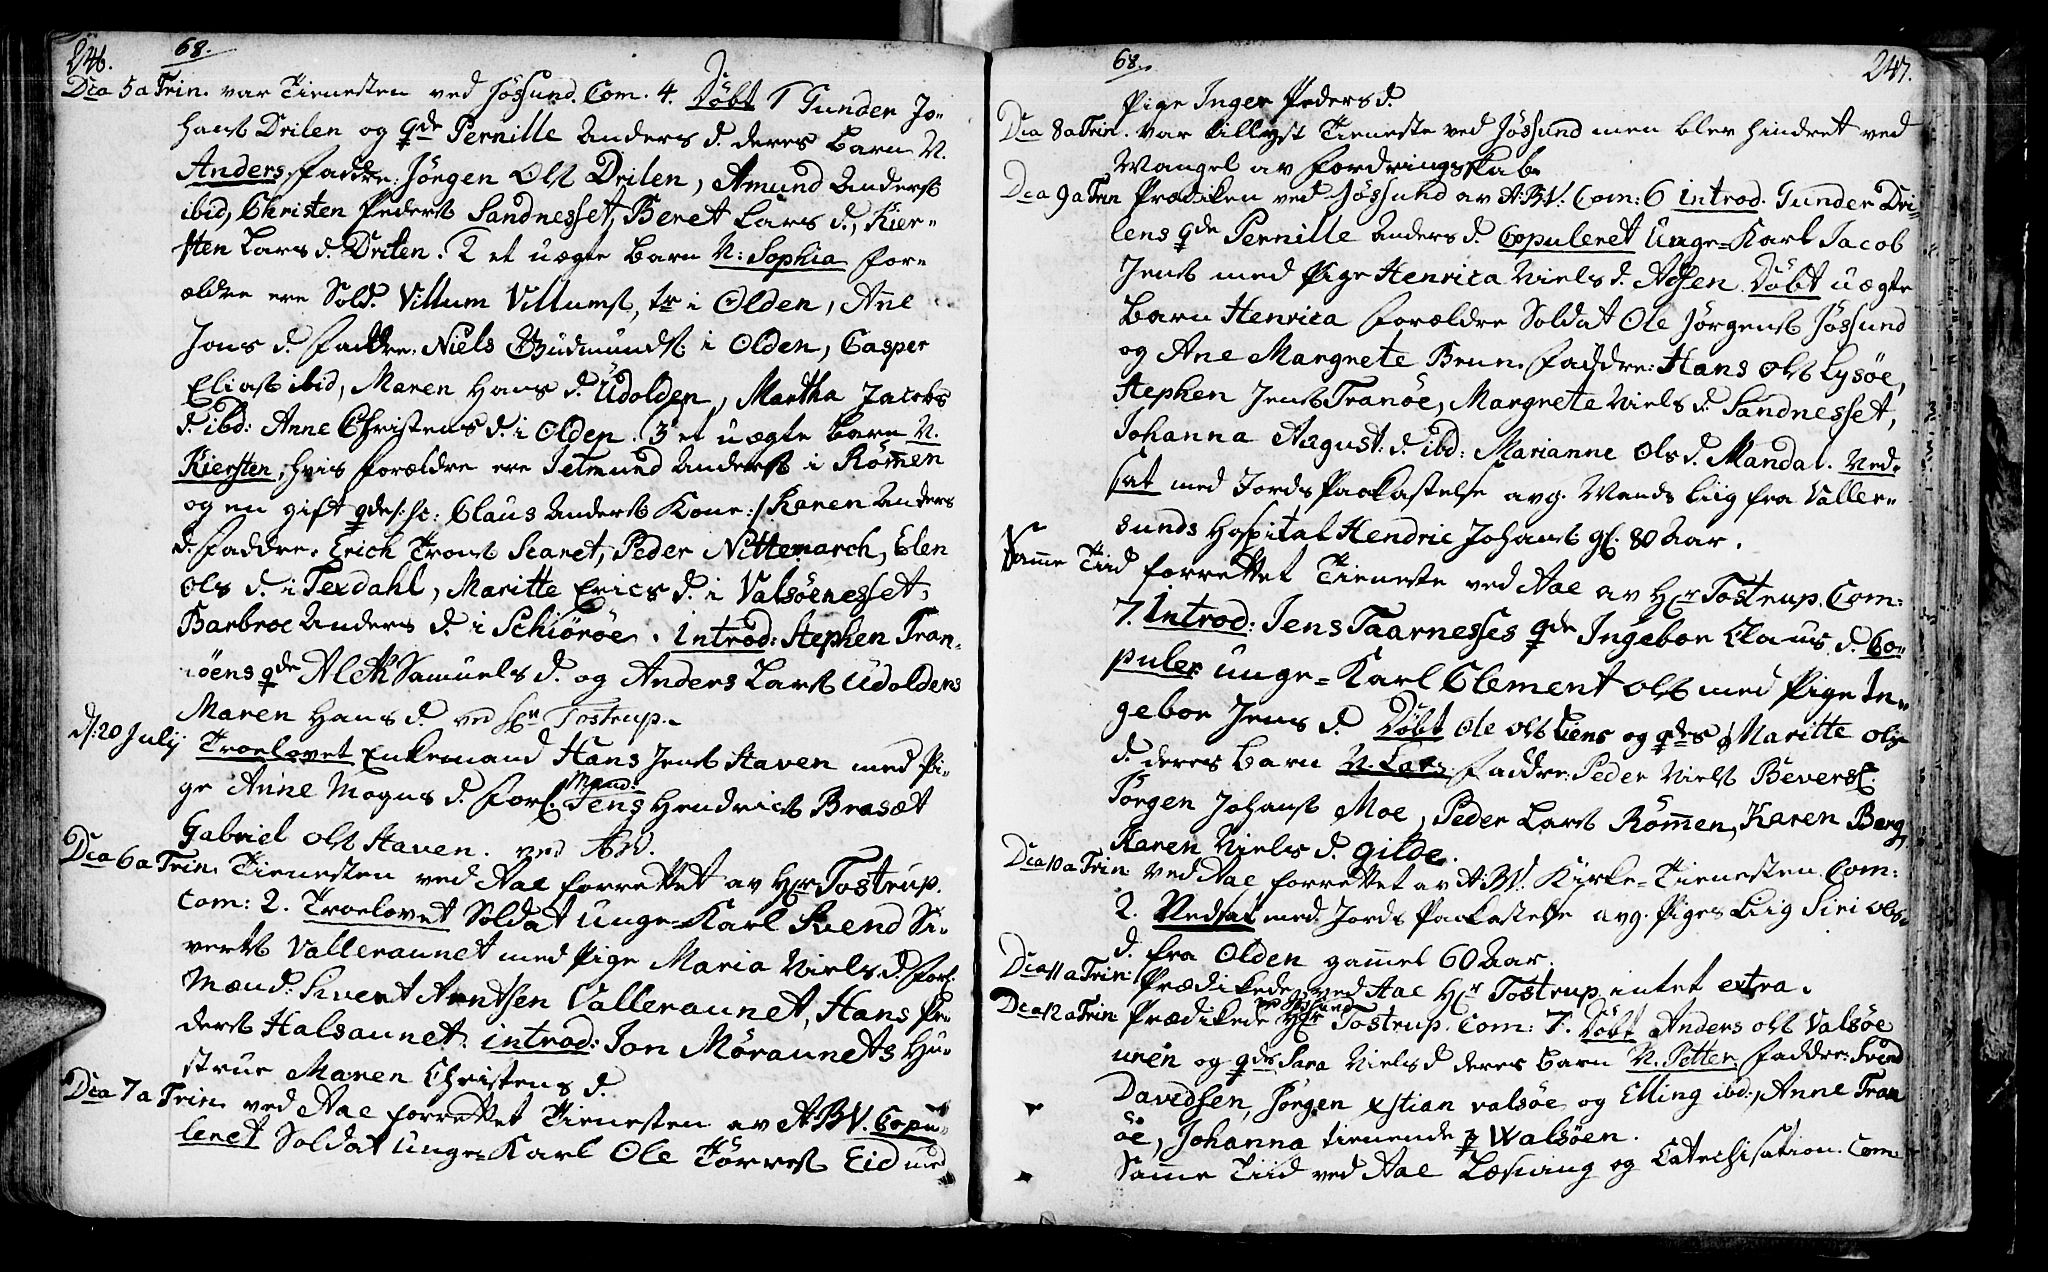 246. 68.
Dca 5 a Trin. var Tienesten ved Jössund. Com. 4. Döbt 1 Gunder Jo-
hans Drilen og qde Pernille Anders d. deres barn N.
Anders, faddre: Jörgen Ols Drilen, Amund Anders
ibid, Christen Peders Sandnesset, Beret Lars d., Kier-
sten Lars d. Drilen. 2 et uægte barn N: Sophia for-
ældre ere Sold. Villum Villums, tr i Olden, Ane
Jons d. faddre: Niels Gudmunds i Olden, Casper
Elias ibid, Maren Hans d. Udolden, Martha Jacobs
d. ibd: Anne Christens d. i Olden. 3 et uægte barn N.
Kiersten, hvis forældre ere Jetmund Anders i Römen
og en gift qde /: sc: Claus Anders Kone :/ Karen Anders
d. faddre. Erich Trons Scaret, Peder Nittemarch, Elen
Ols d. i Texdahl, Maritte Erics d. i Valsöenesset,
Barbroe Anders d. i Schiöröe. Introd: Stephen Tran-
öens qde Aleth Samuels d. og Anders Lars Udoldens
Maren Hans d. ved Hr Tostrup.
d. 20 July Troelovet Enkemand Hans Jens Staven med Pi-
ge Anne Mogns d. forl. Mænd: Jens Hendrics Brasæt
Gabriel Ols Staven. ved ABV.
Dca 6 a Trin. Tienesten ved Aae forrettet av Hr Tostrup.
Com: 2. Troelovet Soldat Unge-Karl Svend Si-
verts Valleraunet med Pige Maria Niels d. forl.
Mænd: Sivert Arntsen Valleraunet, Hans Pe-
ders Halsaunet. introd: Jon Möraunets Hu-
strue Maren Christens d.
Dca 7 a Trin. ved Aae forrettet Tienesten av A:BV. Copu-
leret Soldat Unge-Karl Ole Törres Eid med
68. 247.
Pige Inger Peders d.
Dca 8 a Trin. var tillyst Tieneste ved Jössund men blev hindret ved
Mangel av fordringsskab.
Dca 9 a Trin Prædiken ved Jössund av A:BV. Com: 6 introd. Gunder Dri-
lens qde Pernille Anders d. Copuleret Unge-Karl Jacob
Jens med Pige Henrica Niels d. Adsen. Döbt uægte
barn Henrica forældre Soldat Ole Jörgens Jössund
og Ane Margrete Brun. faddre: Hans Ols Lysöe,
Stephen Jens Tranöe, Margrete Niels d. Sandnesset,
Johanna August: d. ibd: Marianne Ols d. Mandal. Ned-
sat med Jords Paakastelse avg. Mands Liig fra Valler-
sunds Hospital Hendric Johans gl. 80 Aar.
Same Tiid forrettet Tieneste ved Aae av Hr Tostrup. Com:
7. Introd: Jens Taarnesses qde Ingebor Claus d. Co-
puler unge-Karl Clement Ols med Pige In-
gebor Jens d. Döbt Ole Ols Liens og qdes Maritte Ols
d. deres barn N. Lars. faddre: Peder Niels Bevers.
Jörgen Johans Moe, Peder Lars Römen, Karen Berg,
Karen Niels d. Gilde.
Dca 10 a Trin ved Aae forrettet av A:BV. Kirke-Tienesten. Com:
2. Nedsat med Jords Paakastelse avg. Piges Liig Siri Ols-
d. fra Olden gamel 60 Aar.
Dca 11 a Trin: Prædikede ved Aae Hr Tostrup intet extra.
Dca 12 a Trin Prædikede ved Jössund Hr Tostrup. Com: 7. Döbt Anders Ols Valsöe
uren og qde Sara Niels d deres barn N. Petter. faddre: Svend
Davidsen, Jörgen xstian valsöe og Elling ibd:, Anne Tran
öe, Johanna tienende p Walsöen.
Same Tiid ved Aae Læsning og Catechisation. Com: